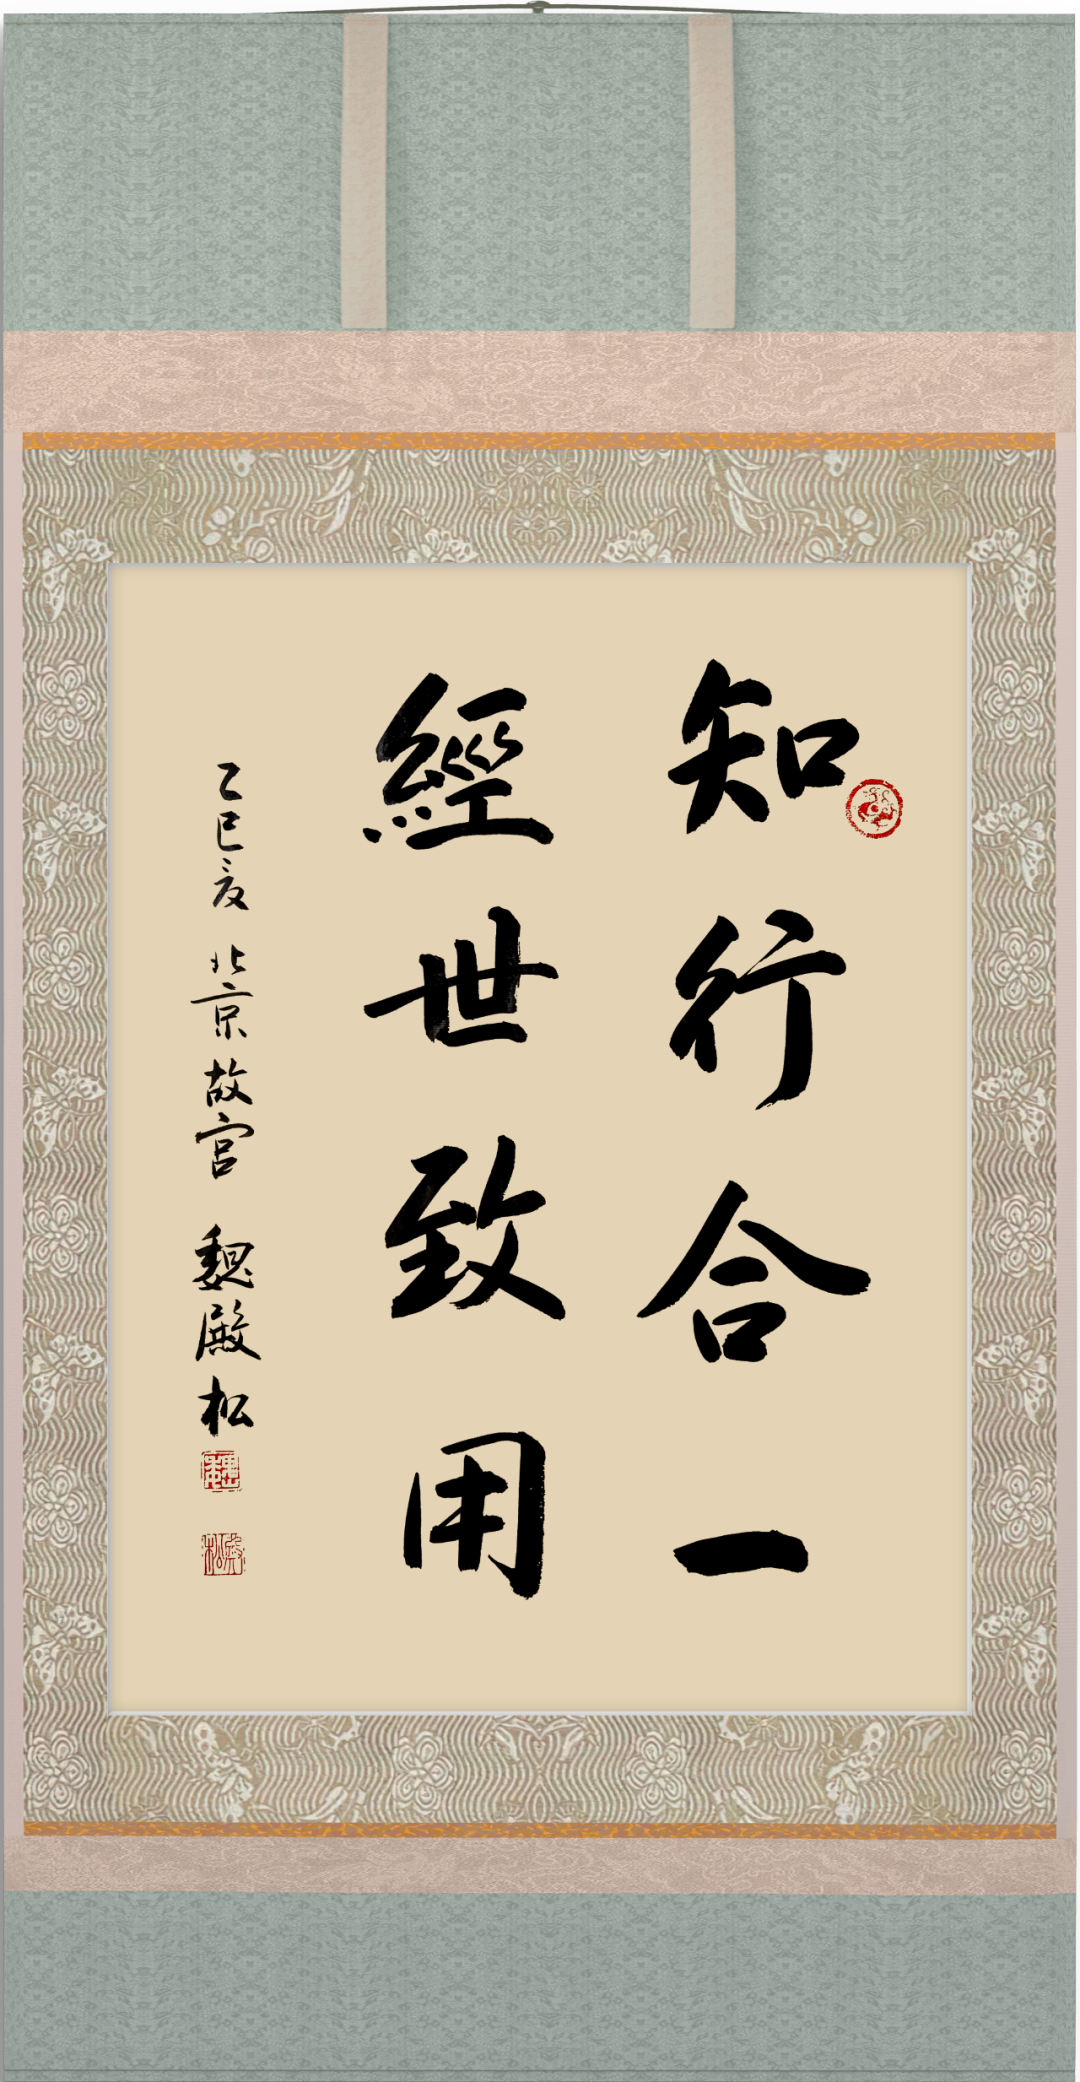 知行合一
經世致用
乙巳夏 北京故宮 魏殿松
魏
殿松